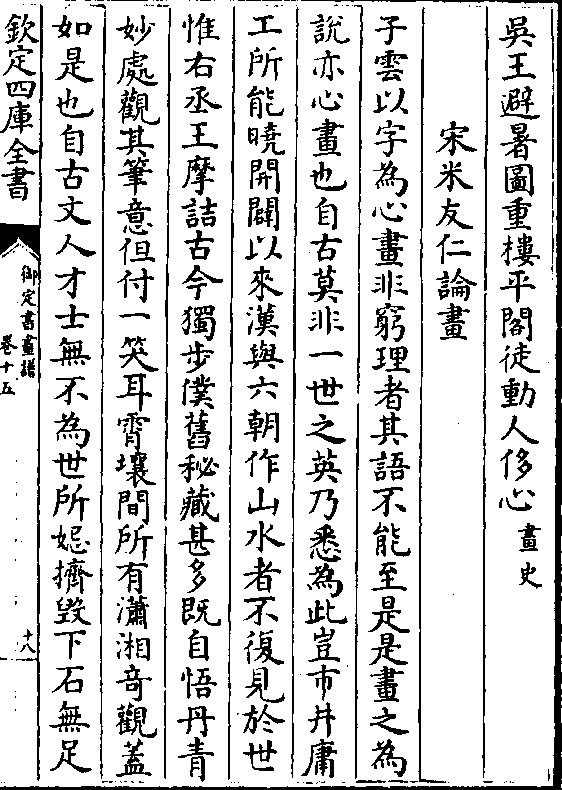 吳王避暑圖重樓平閣徒動人侈心畫史
宋米友仁論畫
子雲以字為心畫非窮理者其語不能至是是畫之為
說亦心畫也自古莫非一世之英乃悉為此豈市井庸
工所能曉開闢以來漢與六朝作山水者不復見於世
惟右丞王摩詰古今獨步僕舊秘藏甚多既自悟丹青
妙處觀其筆意但付一笑耳霄壤間所有瀟湘奇觀蓋
如是也自古文人才士無不為世所媢擠毀下石無足
欽定四庫全書
御定書畫譜
卷十五
十八